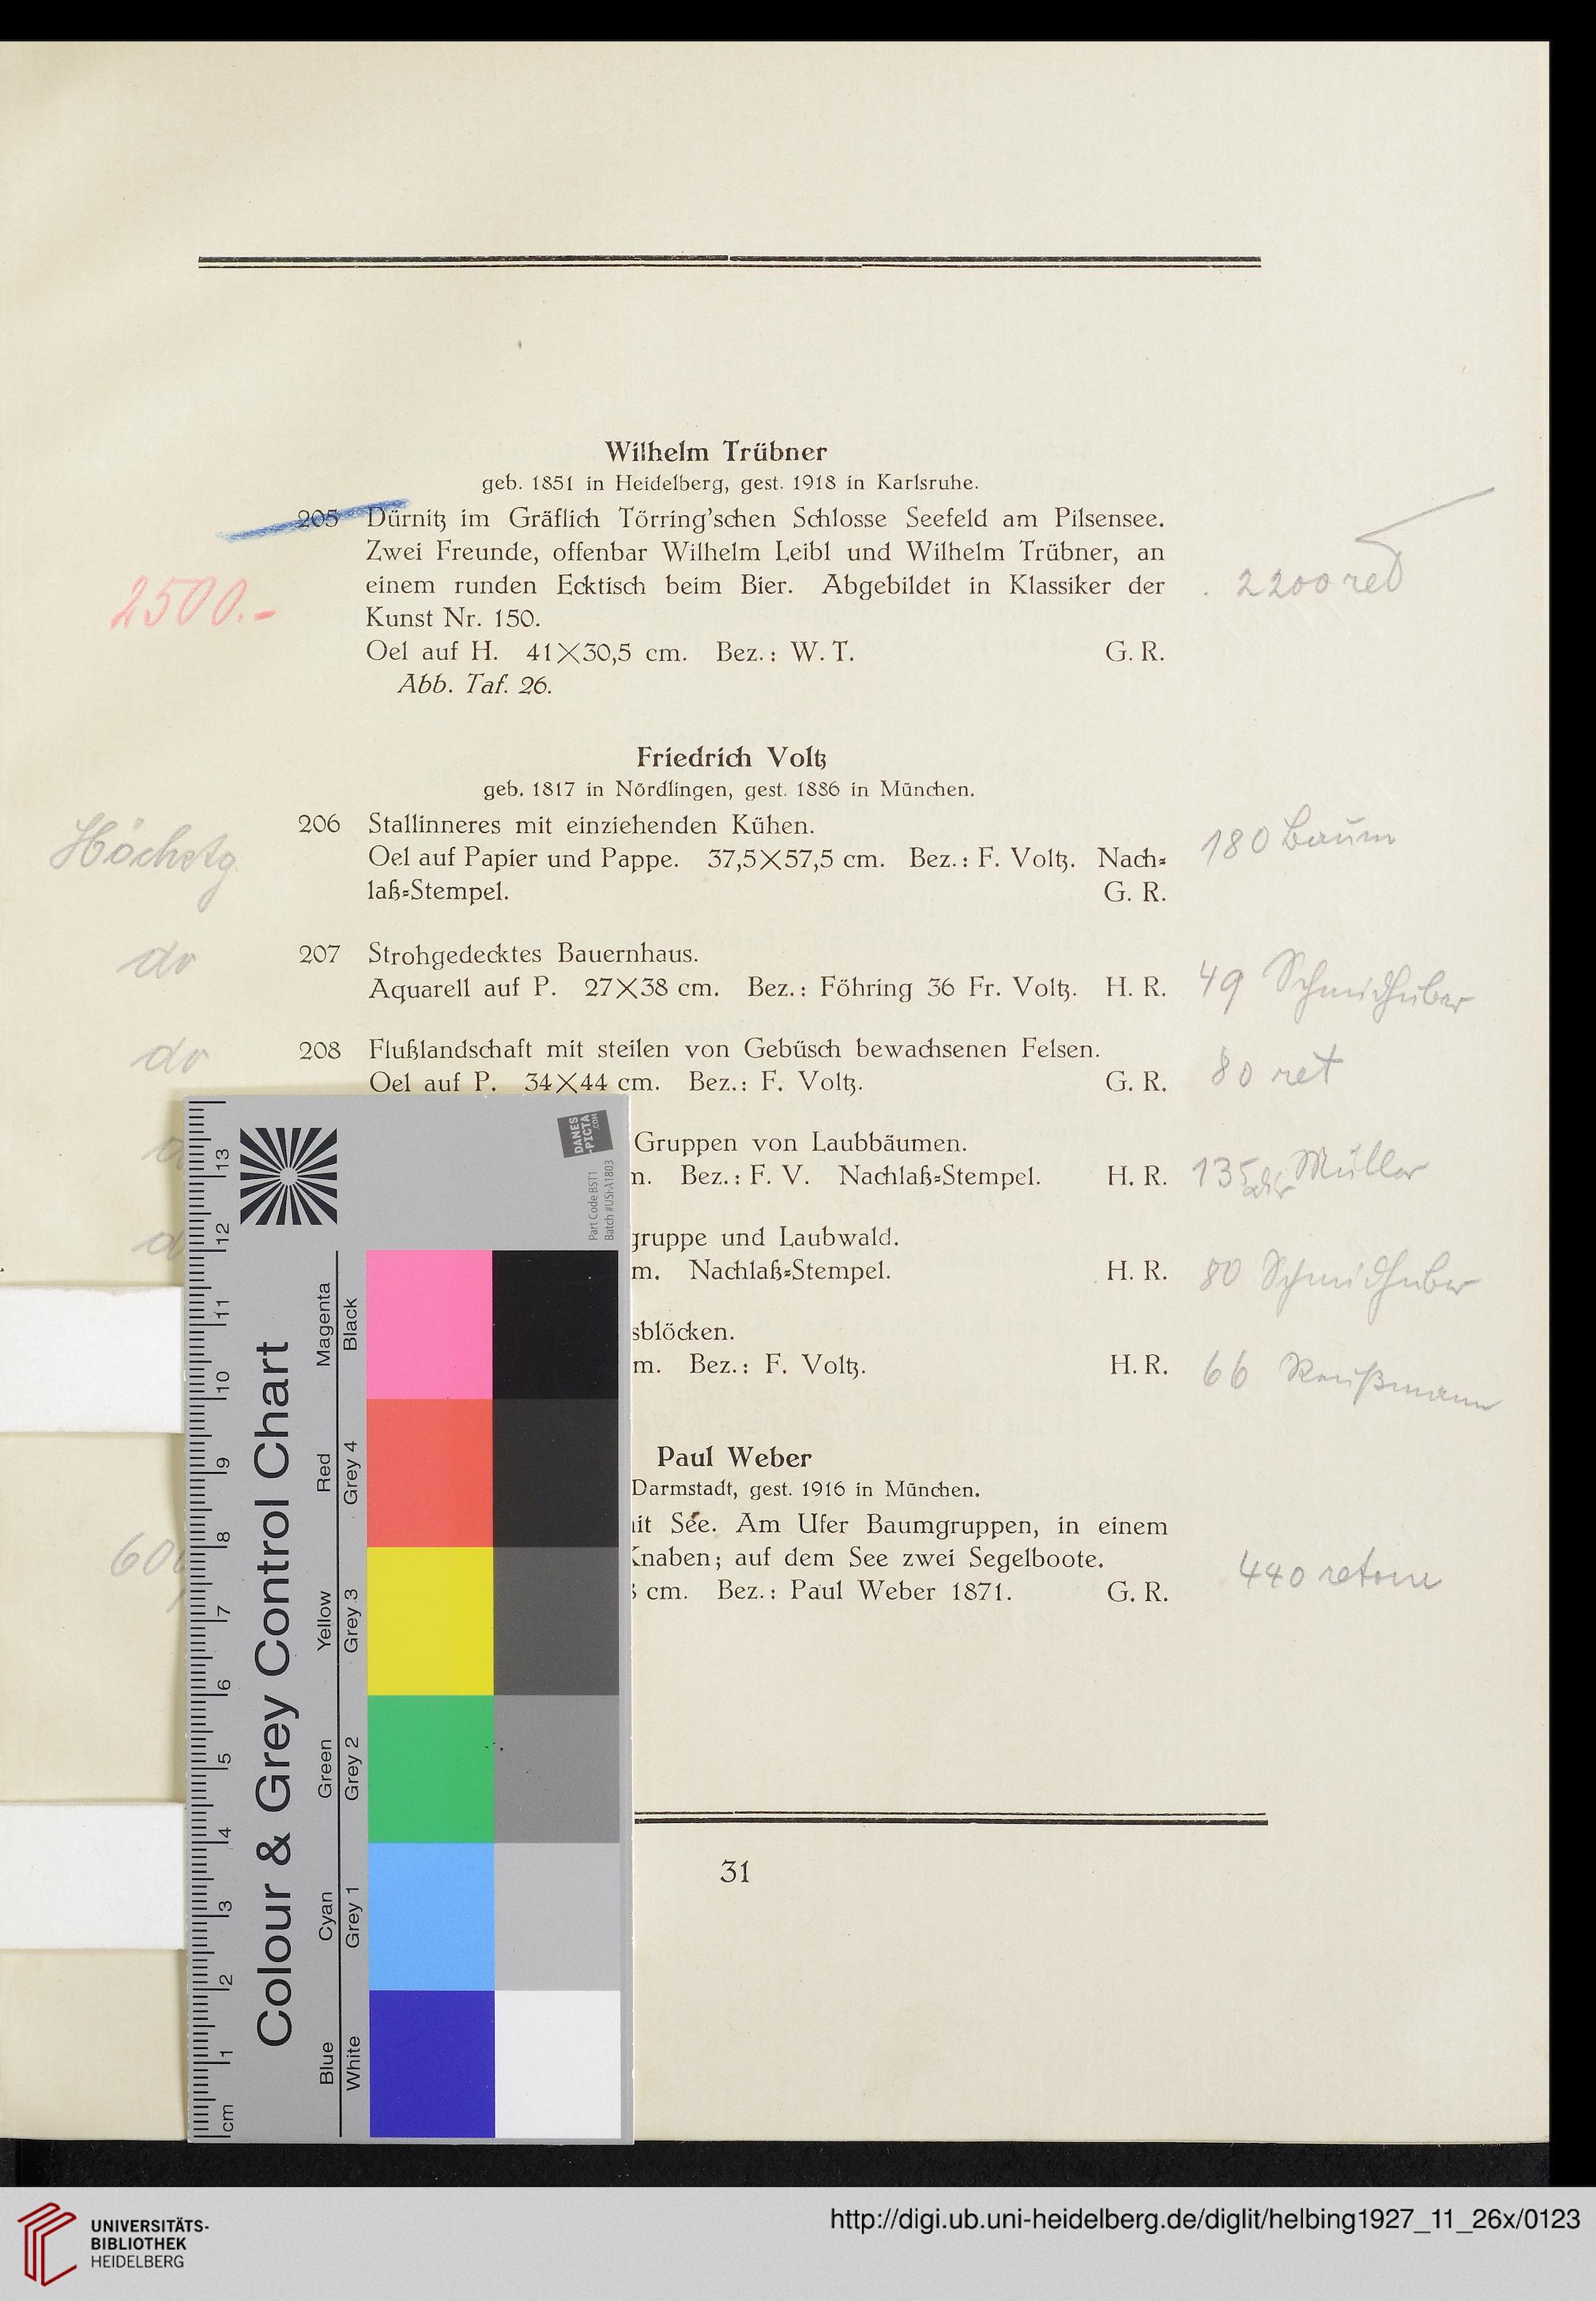 Wilhelm Trübner
geb. 1851 in Heidelberg, gest. 1918 in Karlsruhe.
205 Dürnitz im Gräflich Törring'schen Schlosse Seefeld am Pilsensee.
Zwei Freunde, offenbar Wilhelm Leibl und Wilhelm Trübner, an
einem runden Ecktisch beim Bier. Abgebildet in Klassiker der
Kunst Nr. 150.
Oel auf H. 41×30,5 cm. Bez.: W. T. G. R.
Abb. Taf. 26.
2500.-
2200 ret
Friedrich Voltz
geb. 1817 in Nördlingen, gest. 1886 in München.
206 Stallinneres mit einziehenden Kühen.
Oel auf Papier und Pappe. 37,5×57,5 cm. Bez.: F. Voltz. Nach-
laß-Stempel. G. R.
Höchstg
180 Baum
207 Strohgedecktes Bauernhaus.
Aquarell auf P. 27×38 cm. Bez.: Föhring 36 Fr. Voltz. H. R.
do
49 Schmidhuber
208 Flußlandschaft mit steilen von Gebüsch bewachsenen Felsen.
Oel auf P. 34×44 cm. Bez.: F. Voltz. G. R.
do
80 ret
Gruppen von Laubbäumen.
Bez.: F. V. Nachlaß-Stempel. H. R.
135 Müller
gruppe und Laubwald.
m. Nachlaß-Stempel. H. R.
80 Schmidhuber
sblöcken.
m. Bez.: F. Voltz. H. R.
66
Paul Weber
Darmstadt, gest. 1916 in München.
it See. Am Ufer Baumgruppen, in einem
Knaben; auf dem See zwei Segelboote.
cm. Bez.: Paul Weber 1871. G. R.
440 retour
31
Colour & Grey Control Chart
Magenta Black
Red Grey 4
Yellow Grey 3
Green Grey 2
Cyan Grey 1
Blue White
DANES
-PICTA
.COM
Part Code BST1
Batch #USIA1803
13
12
11
10
9
8
7
6
5
4
3
2
1
cm
UNIVERSITÄTS-
BIBLIOTHEK
HEIDELBERG
http://digi.ub.uni-heidelberg.de/diglit/helbing1927_11_26x/0123